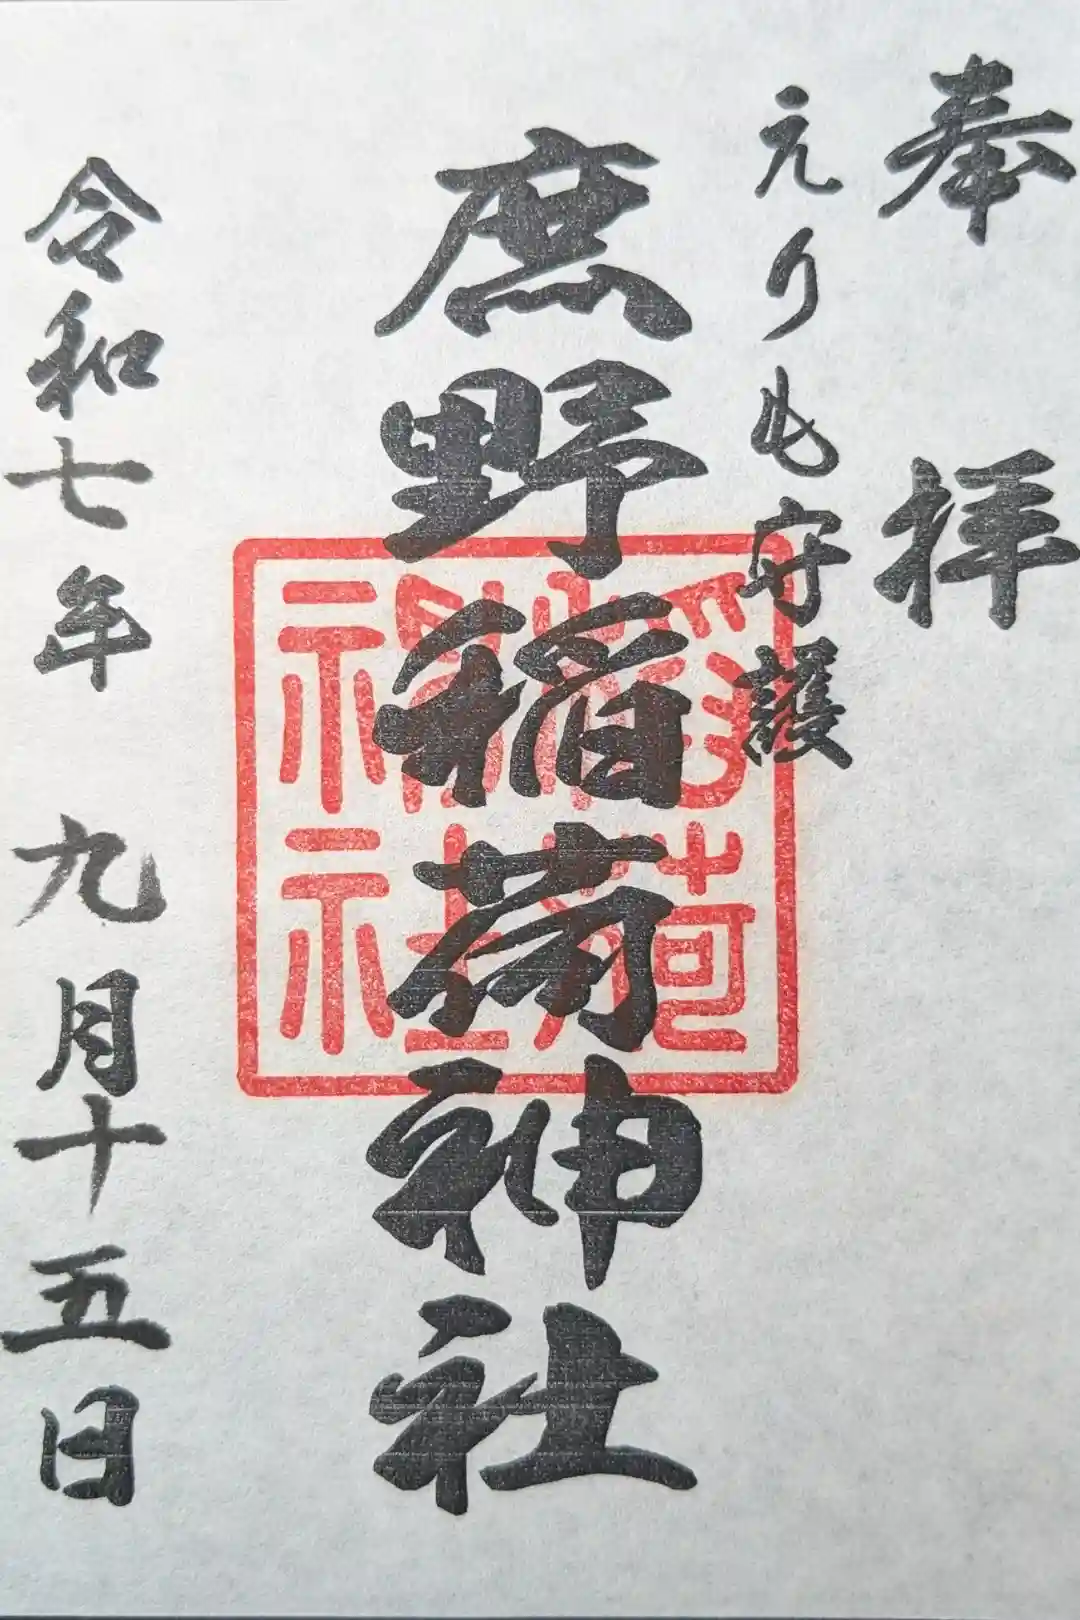 奉拝
えりも守護
庶野稲荷神社
稲荷神社
令和七年九月十五日